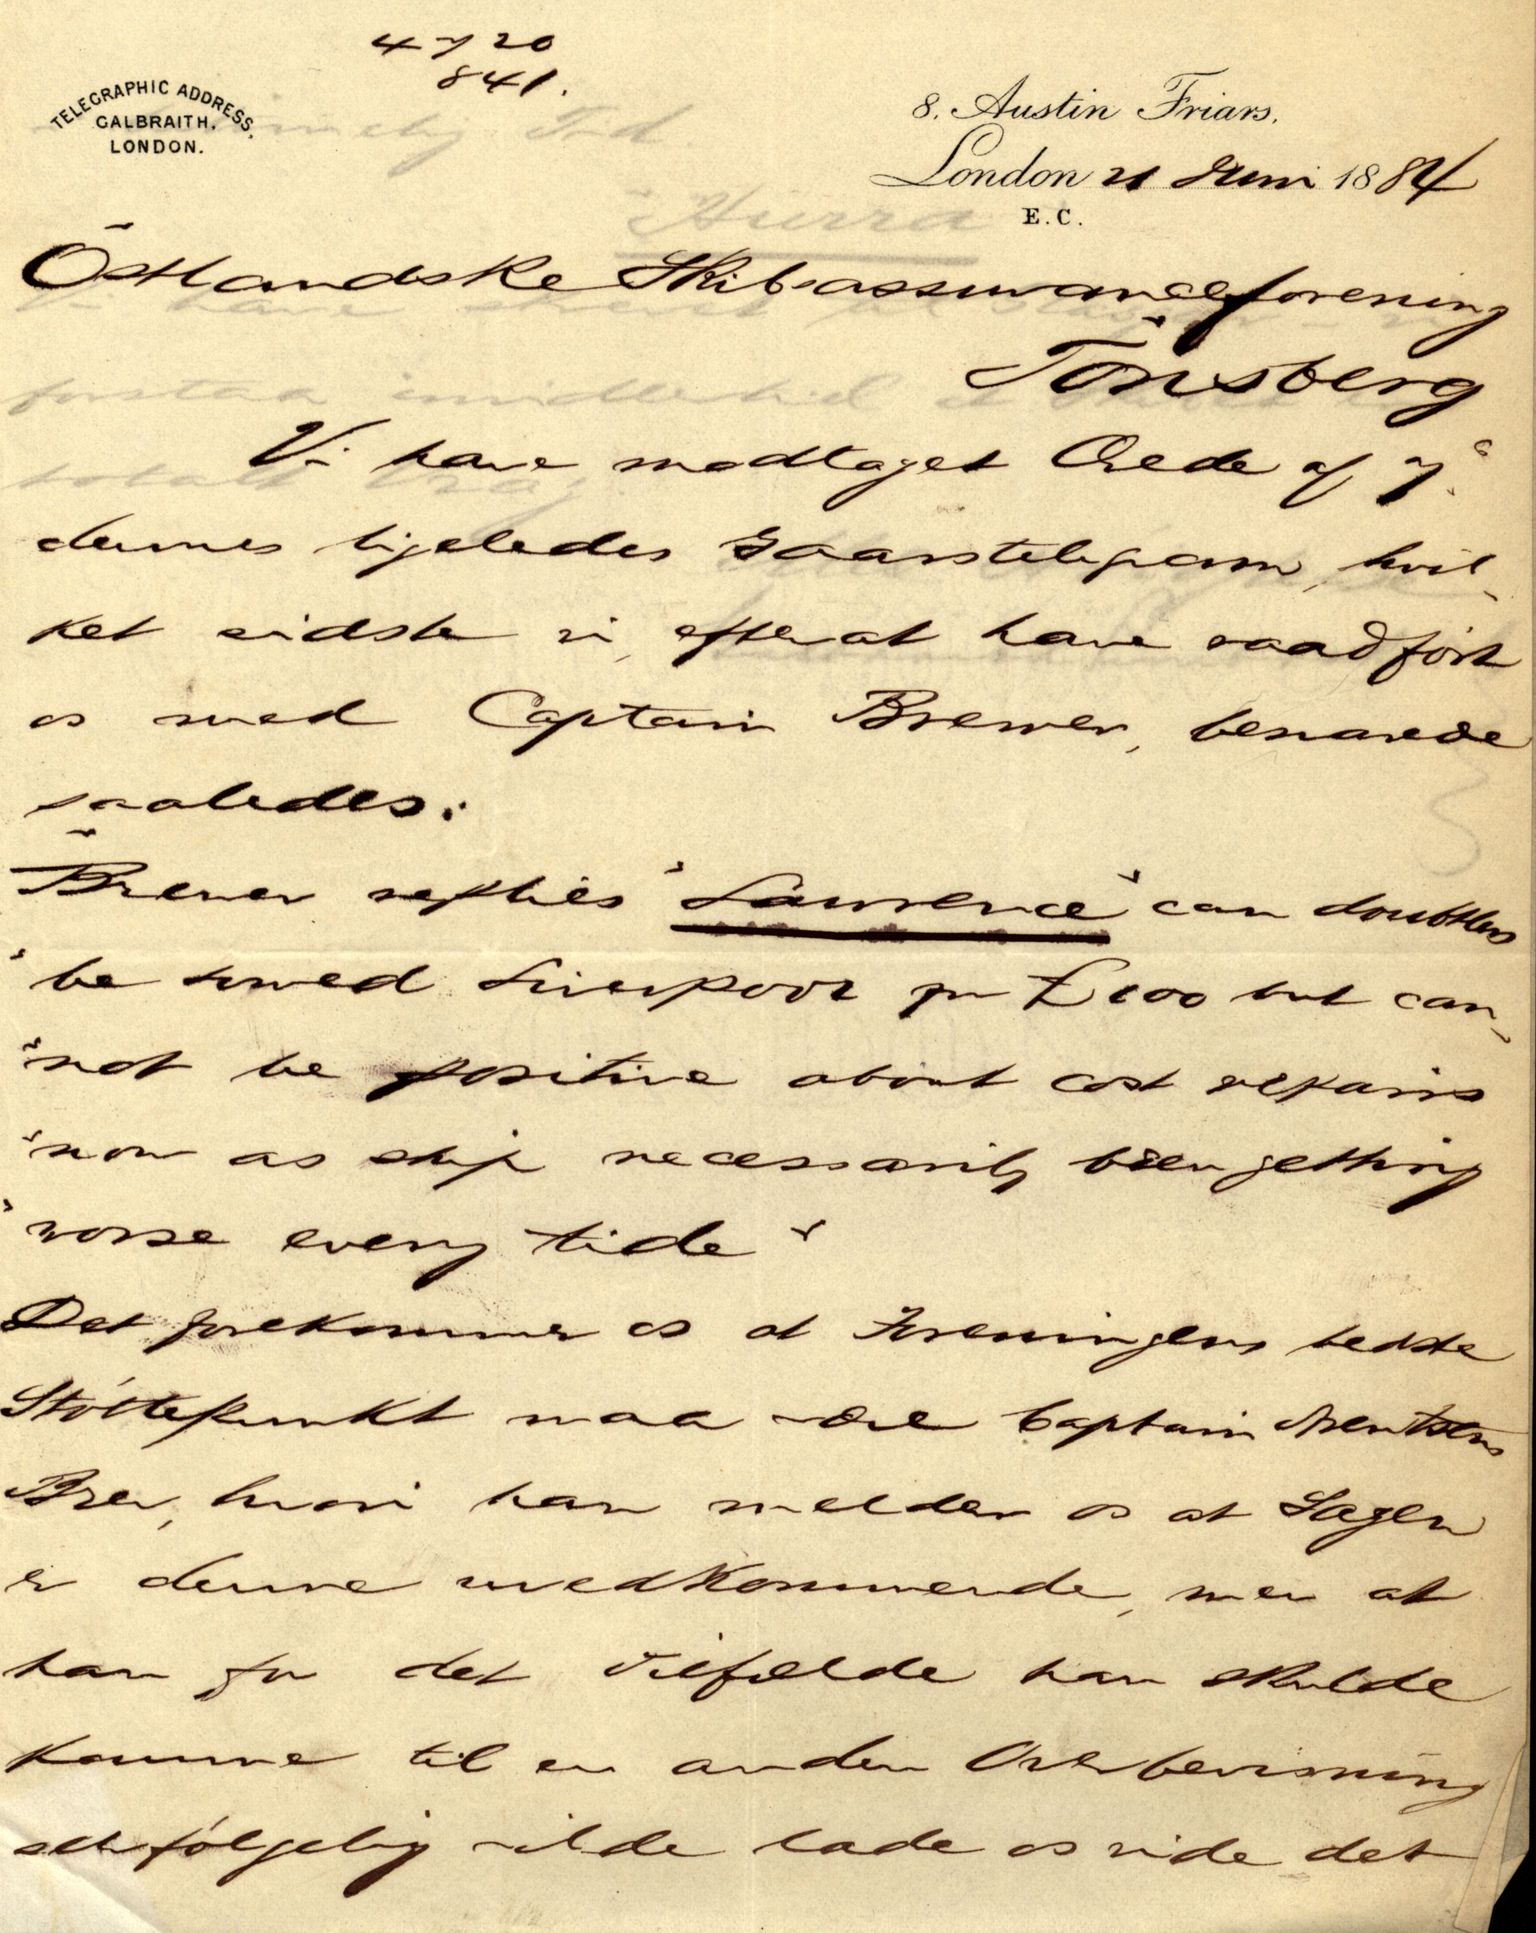 4720
841.
TELEGRAPHIC ADDRESS,
GALBRAITH,
LONDON.
8. Austin Friars.
London 21 Juni 1884
E.C.
Östlandske Skibsassuranceforening
Tönsberg
Vi have modtaget Ærede af
dennes ligeledes Gaarstelegram, hvil-
ket sidste vi, efterat have raadført
os med Captain Brewer, besvarede
saaledes:
"Brewer replies "Lawrence" can doubtless
"be towed Liverpool for £100 but can-
"not be positive about cost repairs
"now as ship necessarily been getting
"worse every tide"
Det forekommer os at Foreningens bedste
Støttepunkt maa være Captain
Brev, hvori han melder os at Sagen
er denne uvedkommende, men at
han for det Tilfælde han skulde
komme til en anden Overbevisning
selvfølgelig vilde lade os vide det